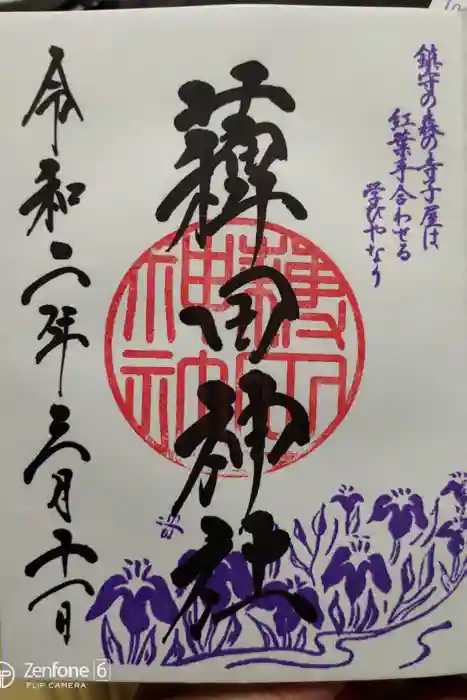 鎮守の森の寺子屋は
紅葉手合わせる
学びやなり
薭田神社
薭田
神社
令和二年三月十一日
Zenfone 6
FLIP CAMERA